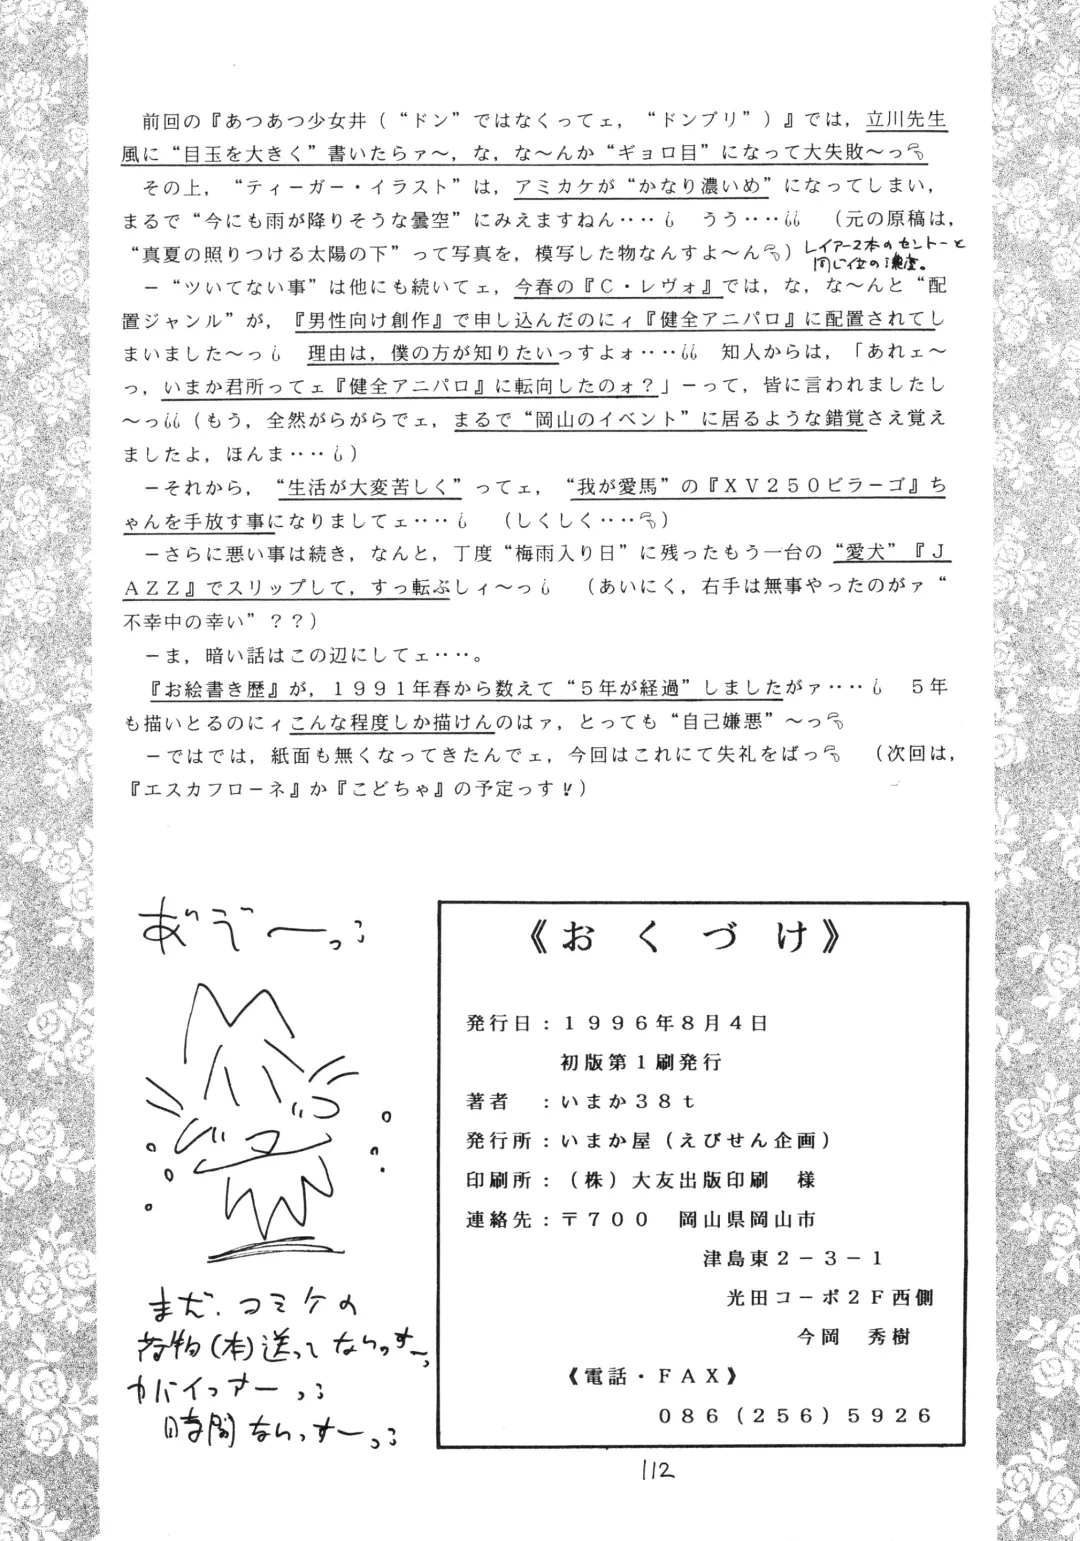 前回の『あつあつ少女丼（“ドン”ではなくってェ，“ドンブリ”）』では，立川先生
風に“目玉を大きく”書いたらァ～，な，な～んか“ギョロ目”になって大失敗～っ
その上，“ティーガー・イラスト”は，アミカケが“かなり濃いめ”になってしまい，
まるで“今にも雨が降りそうな曇空”にみえますねん‥‥　うう‥‥　（元の原稿は，
“真夏の照りつける太陽の下”って写真を，模写した物なんすよ～ん）
レイアース本のセントーと
同じ位の濃度。
－“ツいてない事”は他にも続いてェ，今春の『Ｃ・レヴォ』では，な，な～んと“配
置ジャンル”が，『男性向け創作』で申し込んだのにィ『健全アニパロ』に配置されてし
まいました～っ　理由は，僕の方が知りたいっすよォ‥‥　知人からは，「あれェ～
っ，いまか君所ってェ『健全アニパロ』に転向したのォ？」－って，皆に言われましたし
～っ（もう，全然がらがらでェ，まるで“岡山のイベント”に居るような錯覚さえ覚え
ましたよ，ほんま‥‥）
－それから，“生活が大変苦しく”ってェ，“我が愛馬”の『ＸＶ２５０ビラーゴ』ち
ゃんを手放す事になりましてェ‥‥　（しくしく‥‥）
－さらに悪い事は続き，なんと，丁度“梅雨入り日”に残ったもう一台の“愛犬”『Ｊ
ＡＺＺ』でスリップして，すっ転ぶしィ～っ　（あいにく，右手は無事やったのがァ“
不幸中の幸い”？？）
－ま，暗い話はこの辺にしてェ‥‥。
『お絵書き歴』が，１９９１年春から数えて“５年が経過”しましたがァ‥‥　５年
も描いとるのにィこんな程度しか描けんのはァ，とっても“自己嫌悪”～っ
－ではでは，紙面も無くなってきたんでェ，今回はこれにて失礼をばっ　（次回は，
『エスカフローネ』か『こどちゃ』の予定っす!!）
まだ、コミケの
荷物(本)送ってないっすーっ
ヤバイっすーっ
時間ないっすーっ
《おくづけ》
発行日：１９９６年８月４日
初版第１刷発行
著者　：いまか３８ｔ
発行所：いまか屋（えびせん企画）
印刷所：（株）大友出版印刷　様
連絡先：〒７００　岡山県岡山市
津島東２－３－１
光田コーポ２Ｆ西側
今岡　秀樹
《電話・ＦＡＸ》
０８６（２５６）５９２６
112